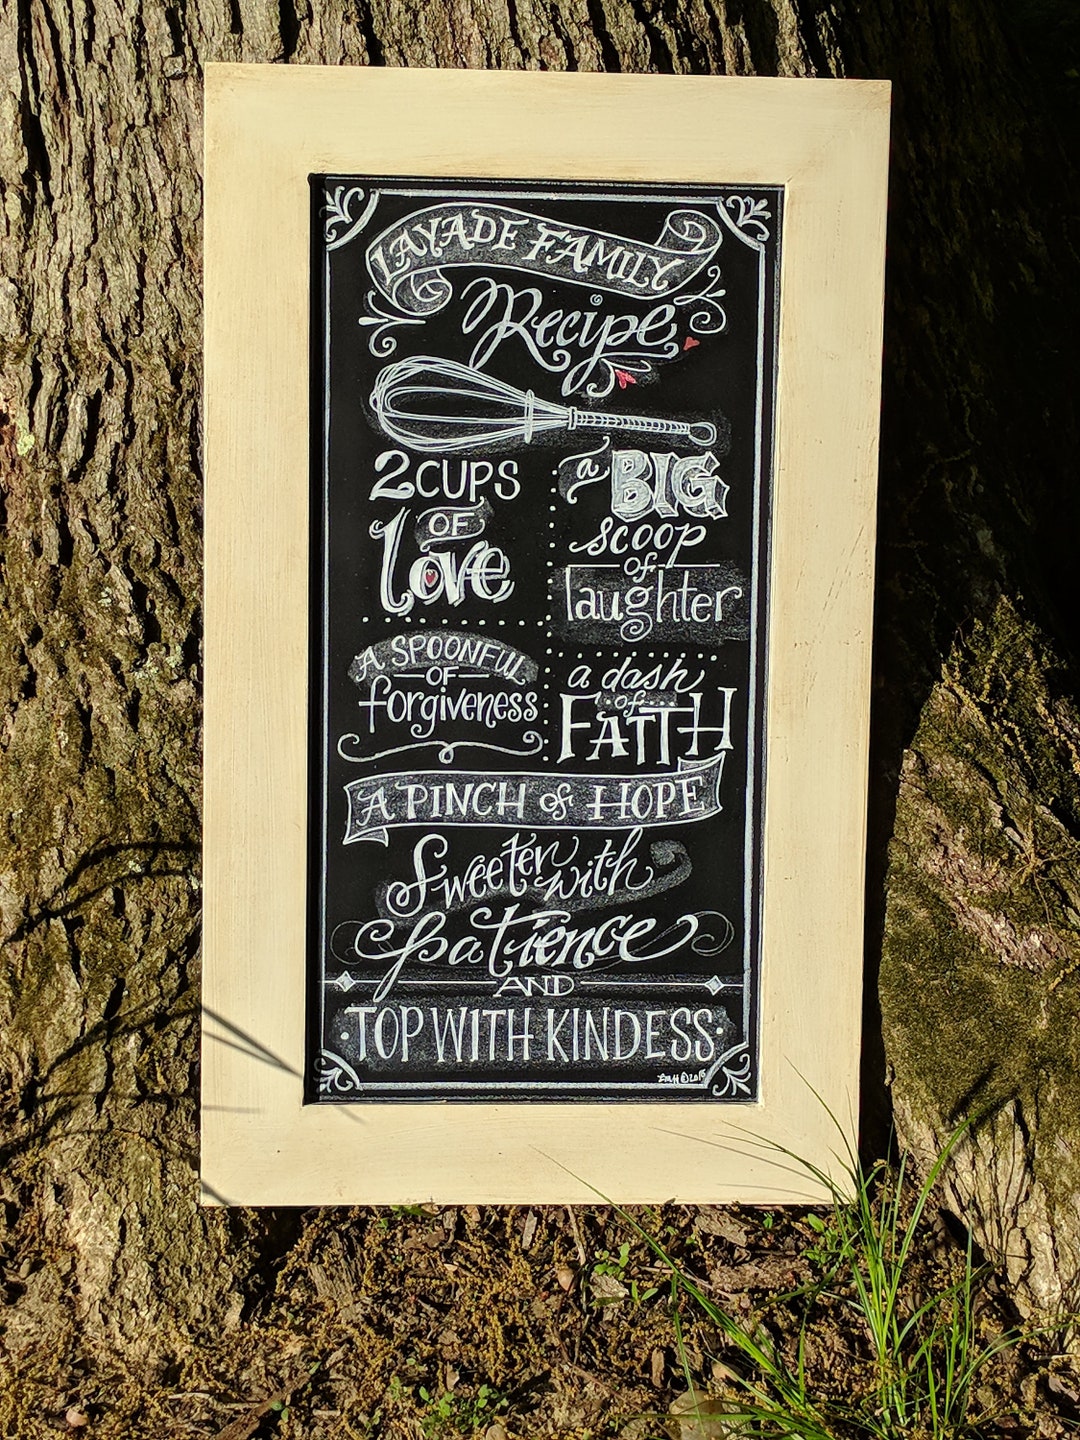 LAYADE FAMILY
Recipe
2 CUPS
OF
love
a BIG
scoop
of
laughter
A SPOONFUL
OF
forgiveness
a dash
of
FAITH
A PINCH of HOPE
Sweeter with
Patience
AND
·TOP WITH KINDESS·